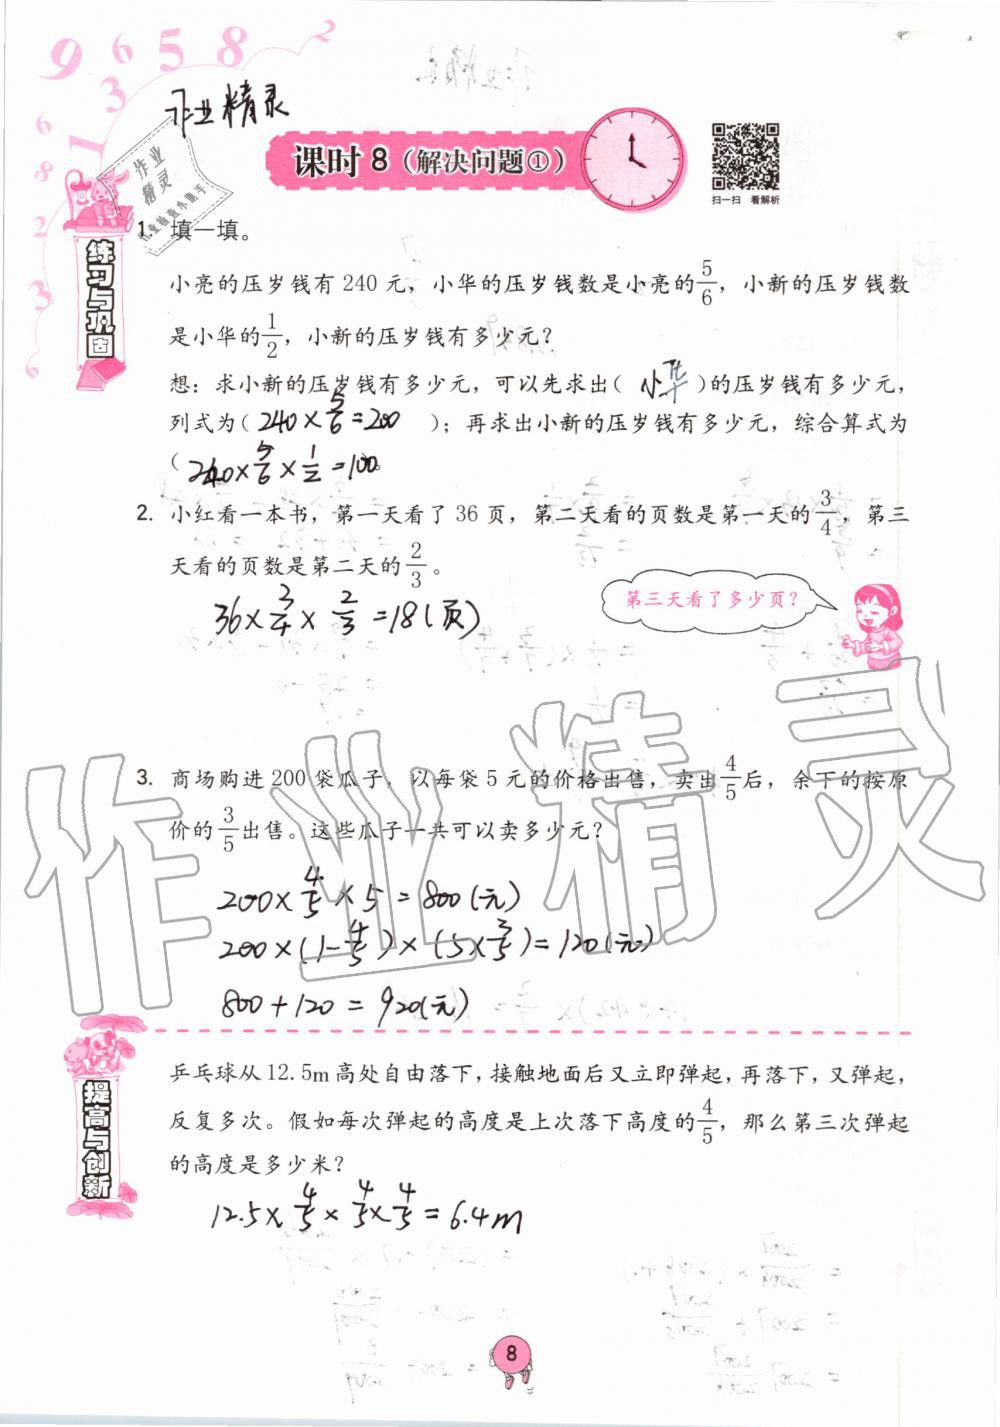 9 6 5 8 2
3
6 1
8
2
3
6
作业精灵
作业
精灵
课时 8（解决问题①）
扫一扫 看解析
练习与巩固
1. 填一填。
小亮的压岁钱有 240 元，小华的压岁钱数是小亮的5/6，小新的压岁钱数
是小华的1/2，小新的压岁钱有多少元？
想：求小新的压岁钱有多少元，可以先求出（ 小华 ）的压岁钱有多少元，
列式为（ 240×5/6=200 ）；再求出小新的压岁钱有多少元，综合算式为
（ 240×5/6×1/2=100。
2. 小红看一本书，第一天看了 36 页，第二天看的页数是第一天的3/4，第三
天看的页数是第二天的2/3。
第三天看了多少页？
36×3/4×2/3=18(页)
3. 商场购进 200 袋瓜子，以每袋 5 元的价格出售，卖出4/5后，余下的按原
价的3/5出售。这些瓜子一共可以卖多少元？
200×4/5×5=800(元)
200×(1-4/5)×(5×3/5)=120(元)
800+120=920(元)
作业精灵
提高与创新
乒乓球从 12.5m 高处自由落下，接触地面后又立即弹起，再落下，又弹起，
反复多次。假如每次弹起的高度是上次落下高度的4/5，那么第三次弹起
的高度是多少米？
12.5×4/5×4/5×4/5=6.4m
8